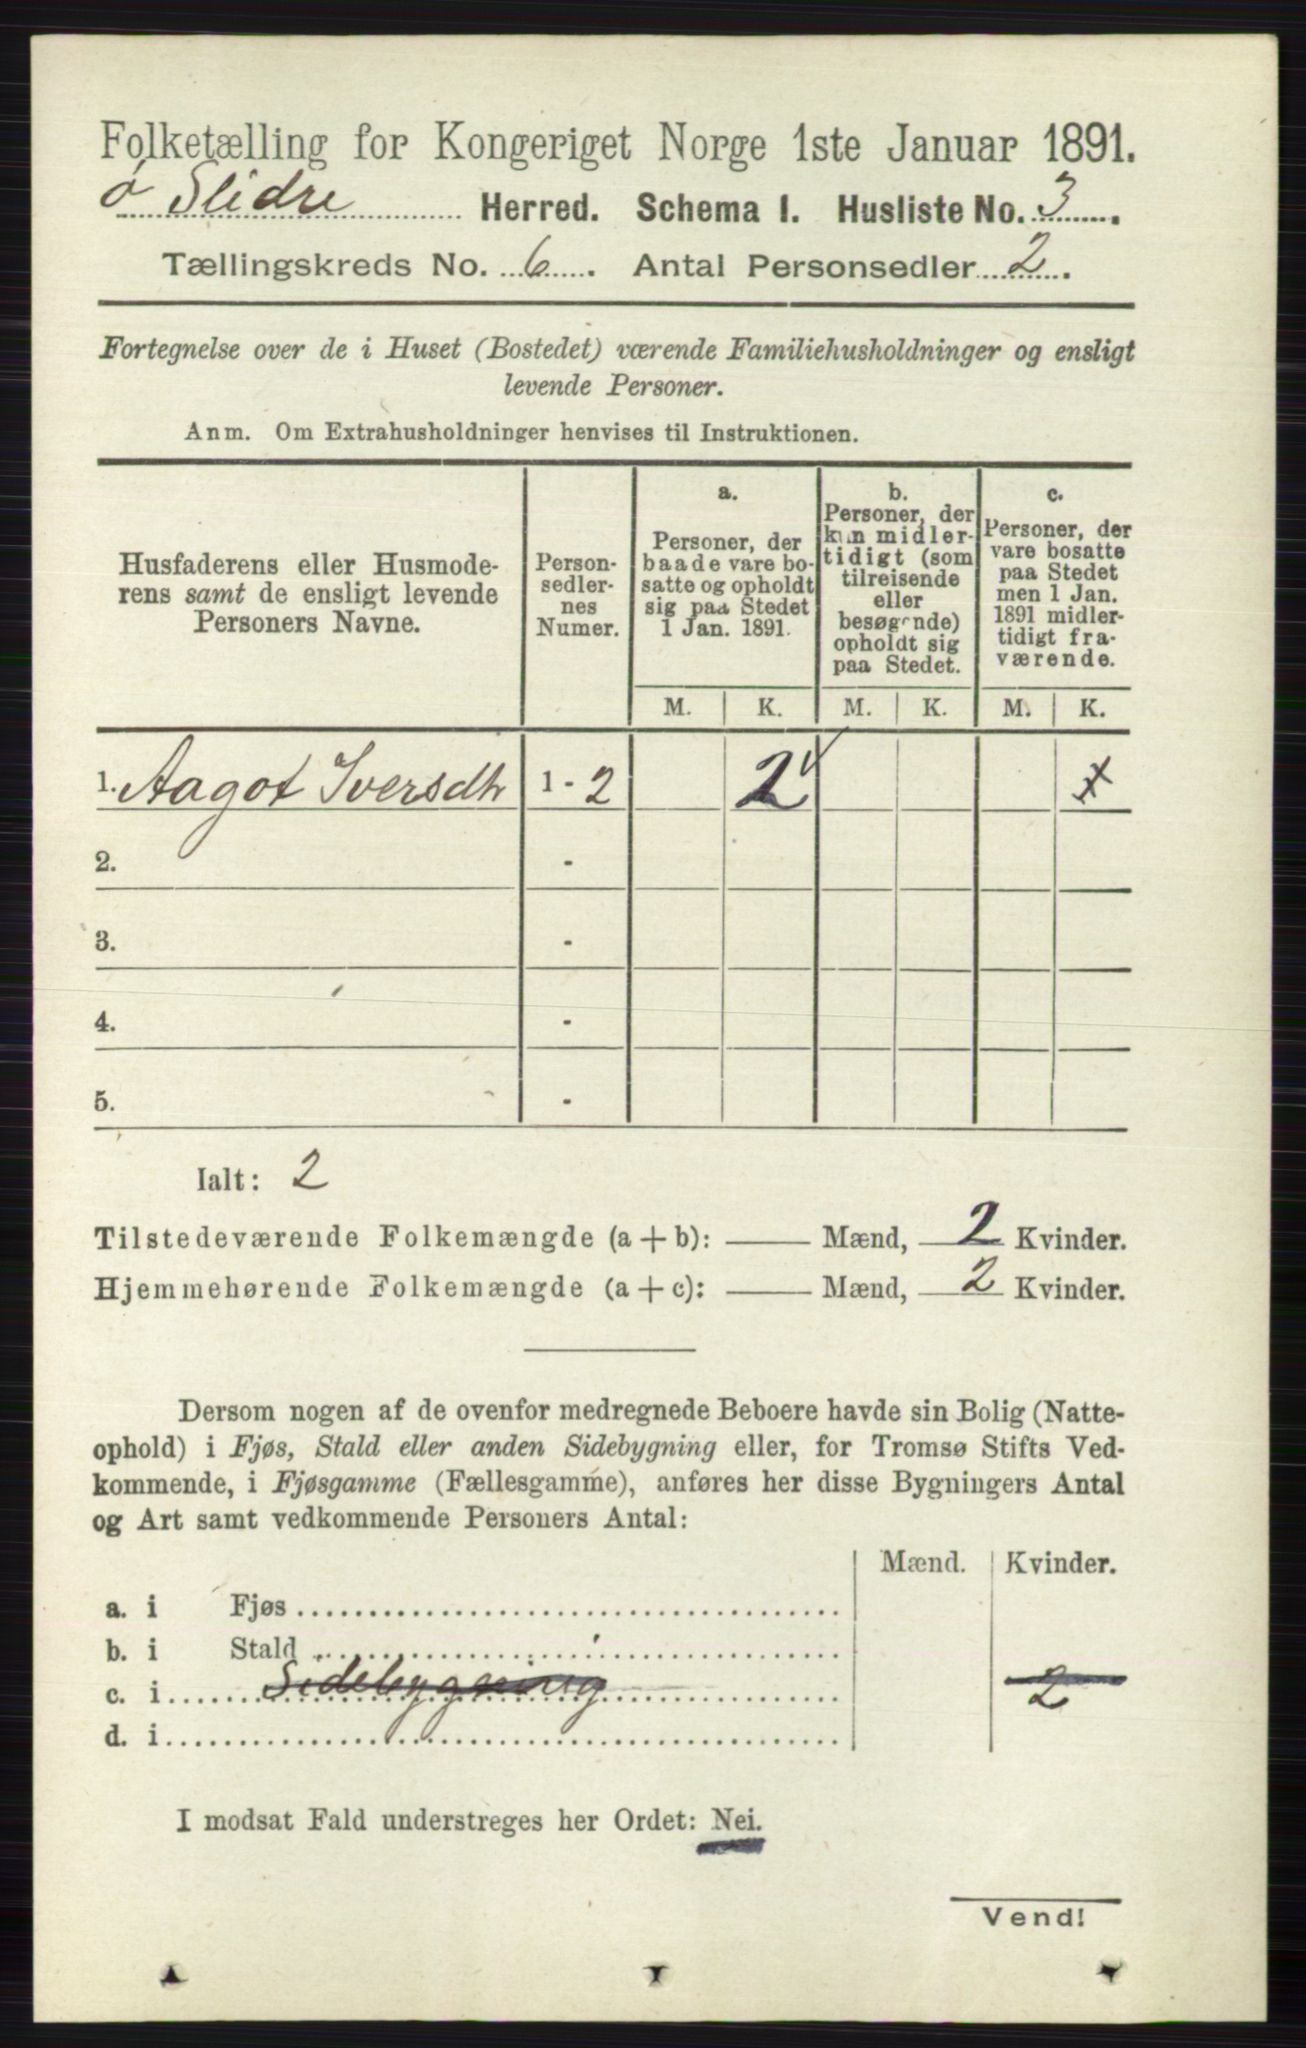 Folketælling for Kongeriget Norge 1ste Januar 1891.
Ø Slidre Herred. Schema I. Husliste No. 3.
Tællingskreds No. 6. Antal Personsedler 2.
Fortegnelse over de i Huset (Bostedet) værende Familiehusholdninger og ensligt
levende Personer.
Anm. Om Extrahusholdninger henvises til Instruktionen.
Husfaderens eller Husmode-
rens samt de ensligt levende
Personers Navne.
Person-
sedler-
nes
Numer.
a.
Personer, der
baade vare bo-
satte og opholdt
sig paa Stedet
1 Jan. 1891.
b.
Personer, der
kun midler-
tidigt (som
tilreisende
eller
besøgende)
opholdt sig
paa Stedet.
c.
Personer, der
vare bosatte
paa Stedet
men 1 Jan.
1891 midler-
tidigt fra-
værende.
M. K. M. K. M. K.
1. Aagot Iversdh 1 - 2 2
2. -
3. -
4. -
5. -
Ialt: 2
Tilstedeværende Folkemængde (a + b): — Mænd, 2 Kvinder.
Hjemmehørende Folkemængde (a + c): — Mænd, 2 Kvinder.
Dersom nogen af de ovenfor medregnede Beboere havde sin Bolig (Natte-
ophold) i Fjøs, Stald eller anden Sidebygning eller, for Tromsø Stifts Ved-
kommende, i Fjøsgamme (Fællesgamme), anføres her disse Bygningers Antal
og Art samt vedkommende Personers Antal:
Mænd. Kvinder.
a. i Fjøs
b. i Stald
c. i Sidebygning 2
d. i
I modsat Fald understreges her Ordet: Nei.
Vend!